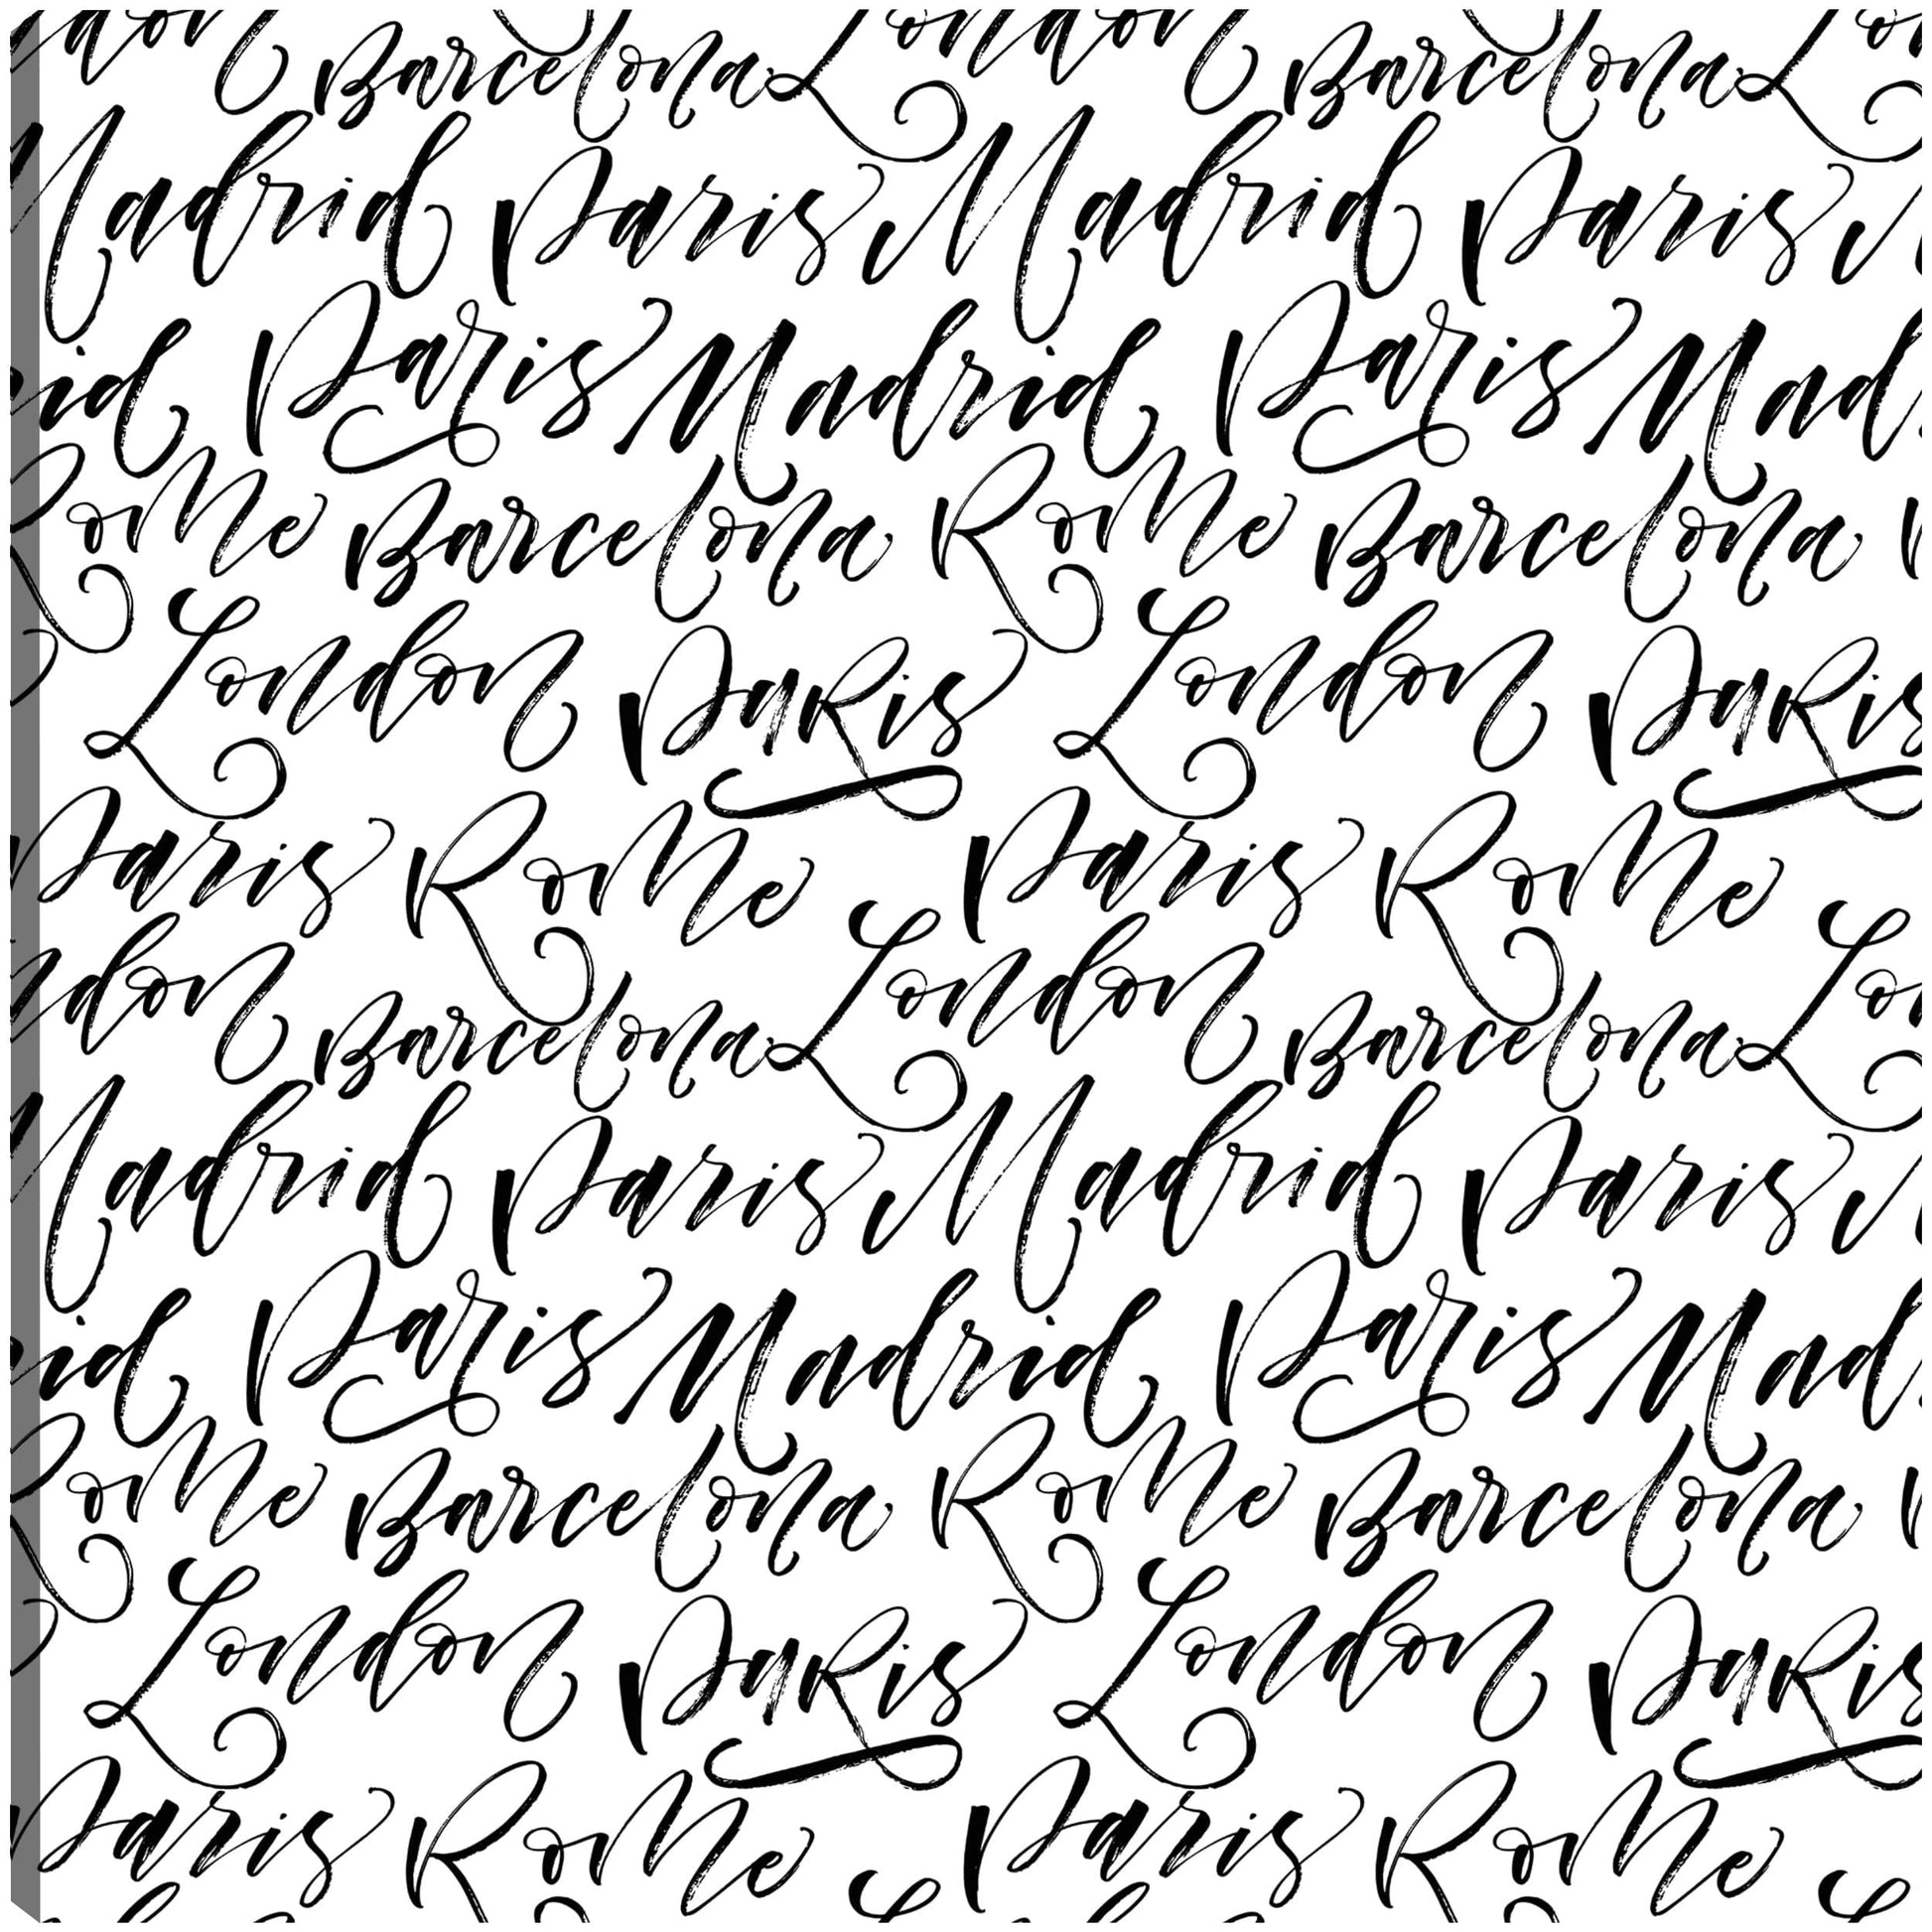 don Barcelona London Barcelona Lo
Madrid Paris Madrid Paris M
rid Paris Madrid Paris Mad
Rome Barcelona Rome Barcelona
London Paris London Paris
Paris Rome Paris Rome
ndon Barcelona London Barcelona Lo
Madrid Paris Madrid Paris M
rid Paris Madrid Paris Mad
Rome Barcelona Rome Barcelona
London Paris London Paris
Paris Rome Paris Rome